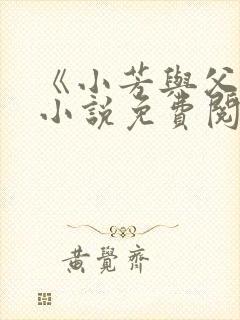 《小芳與父
小說免費閱
黃覺齊